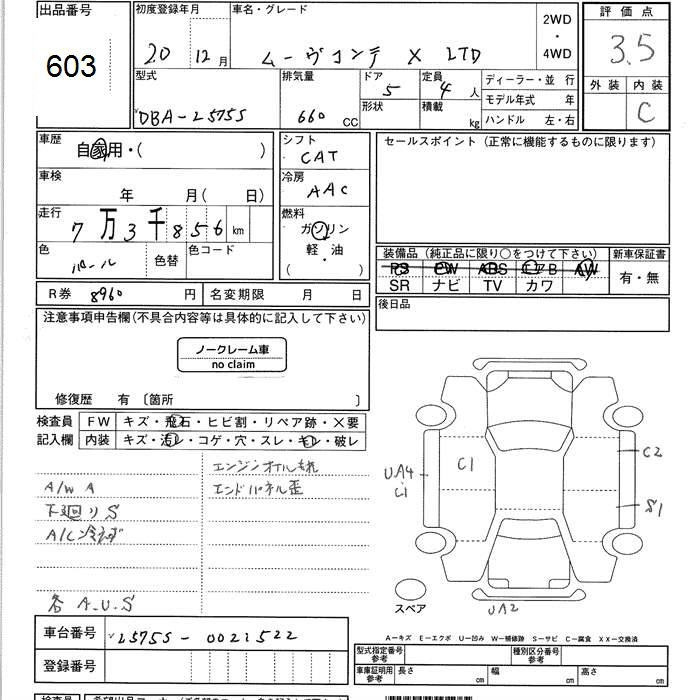 出品番号
603
初度登録年月
20 12月
車名・グレード
ムーヴコンテ X LTD
2WD
・
4WD
評価点
3.5
外装 内装
C
型式
DBA-L575S
排気量
660 CC
ドア
5
形状
定員
4 人
積載
kg
ディーラー・並 行
モデル年式 年
ハンドル 左・右
車歴
自家用・( )
シフト
CAT
車検
年 月( 日)
冷房
AAC
走行
7万3千856 km
燃料
ガソリン
軽・油
( )
色
パール
色替
色コード
R券 8960 円
名変期限 月 日
セールスポイント (正常に機能するものに限ります)
装備品 (純正品に限り○をつけて下さい)
新車保証書
PS PW ABS エアB AW
SR ナビ TV カワ
有・無
後日品
注意事項申告欄(不具合内容等は具体的に記入して下さい)
ノークレーム車
no claim
修復歴 有 〔箇所 〕
検査員
記入欄
FW キズ・飛石・ヒビ割・リペア跡・×要
内装 キズ・汚レ・コゲ・穴・スレ・キレ・破レ
エンジンオイルもれ
A/W A
エンドパネル歪
下廻りS
A/C冷えず
各 A.U.S
UA4
C1
C1
C2
S1
スペア
UA2
車台番号 L575S-0021522
登録番号
A－キズ E－エクボ U－凹み W－補修跡 S－サビ C－腐食 XX－交換済
型式指定番号
参考
種別区分番号
参考
車庫証明用
参考
長さ cm
幅 cm
高さ cm